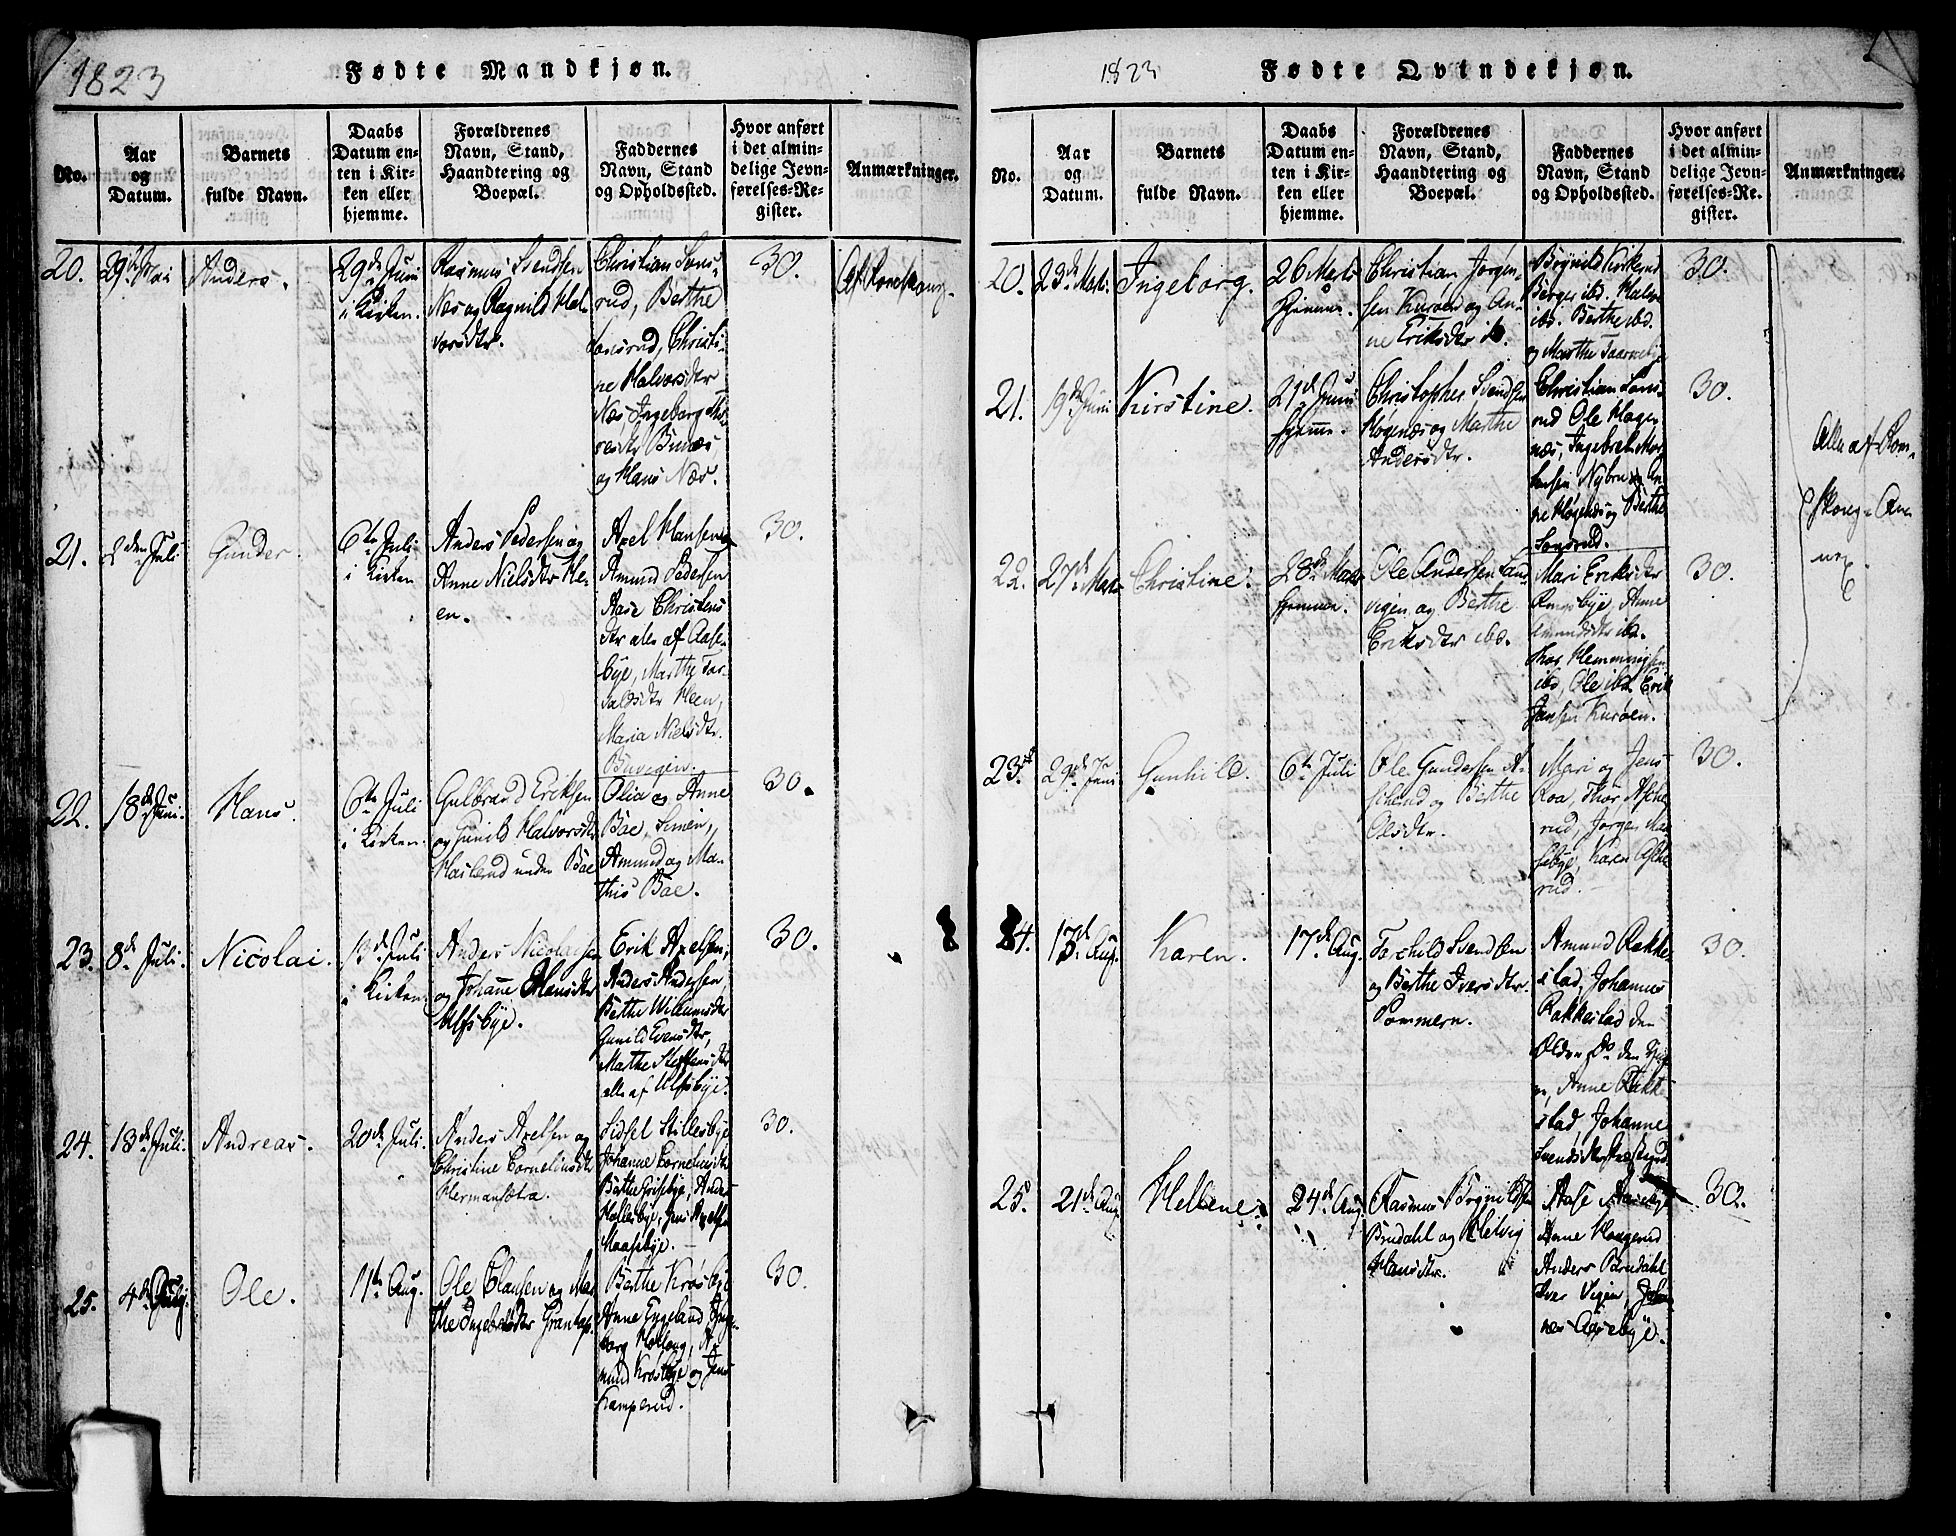 1823
Fødte Mandkjøn.
No.
Aar
og
Datum.
Barnets
fulde Navn.
Daabs
Datum en-
ten i Kir-
ken eller
hjemme.
Forældrenes
Navn, Stand,
Haandtering og
Boepæl.
Faddernes
Navn, Stand
og Opholdssted.
Hvor anført
i det almin-
delige Jevn-
førelses-Re-
gister.
Anmærkninger.
20.
Anders.
29de Juni
i Kirken.
Rasmus Svendsen
Næs og Ragnild Hal-
vorsdtr.
Christian Sons-
rud, Berthe
Sonsrud, Christi-
ne Halvorsdtr
Næs, Ingeborg
og Hans Næs.
30.
21.
2den Juli
Gunder.
6te Juli
i Kirken
Anders Pedersen og
Anne Nielsdtr He-
en.
Axel Hansen
Amund Pedersen
Aase Christens
dtr alle af Aase-
bye, Marthe Tor-
valdsdtr Heen,
Maria Nielsdtr.
Buvegin.
30.
22.
18de Juni.
Hans.
6te Juli
i Kirken.
Gulbrand Eriksen
og Gunild Halvorsdtr
Haslerud under Bøe
Olia og Anne
Bøe, Simen,
Amund og Ma-
this Bøe.
30.
23.
8de Juli.
Nicolai.
13de Juli
i Kirken.
Anders Nicolaisen
og Johanne Hansdtr
Ulfsbye.
Erik Axelsen,
Anders Andersen,
Berthe Willumsdtr
Gunild Evensdtr,
Marthe Steffensdtr
alle af Ulfsbye.
30.
24.
13de Juli.
Andreas.
20de Juli.
Anders Axelsen og
Christine Corneliusdtr
Hermansæta.
Sidsel Stillesbye
Johanne Corneliusdtr
Berthe Grisebye, Anders
Hollesbye, Jens Axelsen
Haasebye.
30.
25.
4de July.
Ole.
11te Aug.
Ole Clausen og Mar
the Ingebretsdtr Grantop.
Berthe Krosbye
Anne Tygeland Inge-
borg Holtong, A-
mund Krosbye og Jens
Kamperud.
30.
1823
Fødte Qvindekjøn.
No.
Aar
og
Datum.
Barnets
fulde Navn.
Daabs
Datum en-
ten i Kir-
ken eller
hjemme.
Forældrenes
Navn, Stand,
Haandtering og
Boepæl.
Faddernes
Navn, Stand
og Opholdssted.
Hvor anført
i det almin-
delige Jevn-
førelses-Re-
gister.
Anmærkninger.
20.
23de
Ingeborg.
26
hjemme.
Christian Jørgen-
sen Kurøen og An-
ne Eriksdtr ib.
Brynild Kirkerud
Børger ibd. Halvor
ibd. Berthe ibd.
og Marthe Taarnebye
30.
21.
19de Juni
Kirstine.
21de Juni
hjemme.
Christopher Svendsen
Høgenæs og Marthe
Andersdtr.
Christian Sons-
rud Ole Høgen
næs, Ingebret Mor-
tensen Nybroe An-
ne Høgenæs og Berthe
Sonsrud.
30.
22.
27de
Christine.
28de
hjemme.
Ole Andersen Sand
vigen og Berthe
Eriksdtr ibd.
Mari Eriksdtr
Ringsbye, Anne
Amundsdtr ibd.
Thor Hemmingsen
ibd, Ole ibd Erik
Jansen Kurøen.
30.
Alle af Røm-
skoug An-
nex.
23.
29de Juni
Gunhild.
6te Juli
Ole Gundersen A-
scherud og Berthe
Olsdtr.
Mari og Jens
Roa, Thor Asche
rud, Jørgen Maa
sebye, Karen Asche
rud.
30.
24.
13de Aug.
Karen.
17de Aug.
Torchild Svendsen
og Berthe Iversdtr.
Pommern.
Amund Rakke-
stad, Johannes
Rakkestad den
Eldre Do den Yng
re, Anne Rakke
stad, Johanne
Svendsdtr
30.
25.
21de Aug
Hellene.
24de Aug
Rasmus Brynildsen
Brudahl og Helvig
Hansdtr.
Aase Aasebye
Anne Haugerud
Anders Brudahl
Iver Vigen, Johan-
nes Aasebye.
30.